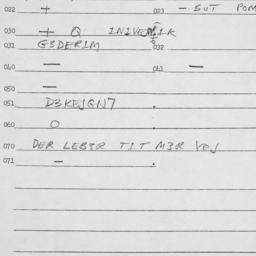 022 + 023 - SUT POM
030 + Q INIVE
031 G3DERIM 032
040 — 041 —
050 —
051 D3KEIGN7 .
060 O
070 DER LEB3R TIT M3R VEJ
071 — .